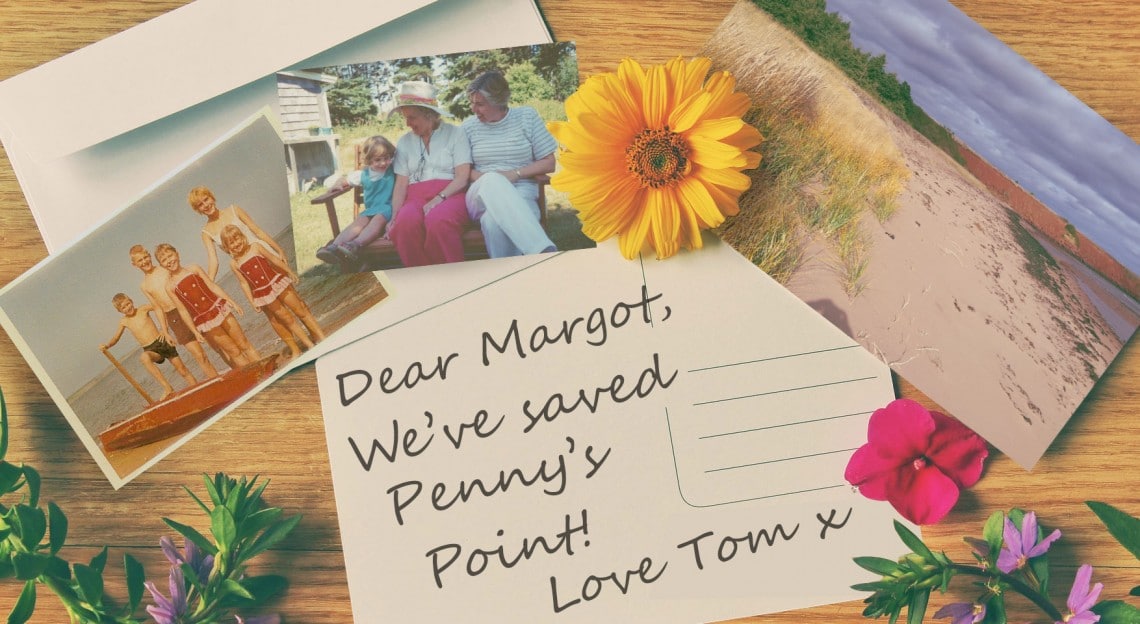 Dear Margot,
We've saved
Penny's
Point!
Love Tom x